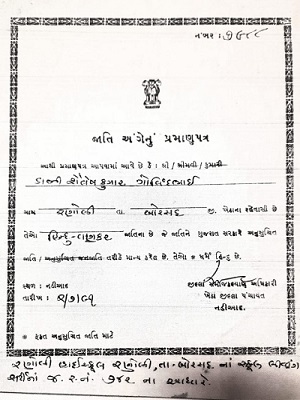 નંબર : ૭૧૮૮
જાતિ અંગેનું પ્રમાણપત્ર
આથી પ્રમાણપત્ર આપવામાં આવે છે કે શ્રી / શ્રીમતી / કુમારી
ડાભી શૈલેષકુમાર ગોવિંદભાઈ
ગામ રણોલી તા. બોરસદ જી. ખેડાના રહેવાસી છે
તેઓ હિન્દુ-વણકર જાતિના છે જે જાતિને ગુજરાત સરકારે અનુસુચિત
જાતિ / અનુસુચિત જનજાતિ તરીકે માન્ય કરેલ છે. તેઓ ધર્મે હિન્દુ છે.
સ્થળ : નડીઆદ
તારીખ :
જીલ્લા અધિકારી
ખેડા જીલ્લા પંચાયત
નડીઆદ.
ફક્ત અનુસુચિત જાતિ માટે
રણોલી હાઈસ્કૂલ રણોલી, તા-બોરસદ નાં સ્કૂલ લીવીંગ
સર્ટીનાં જ.ર.નં. ૭૪૨ ના આધારે.